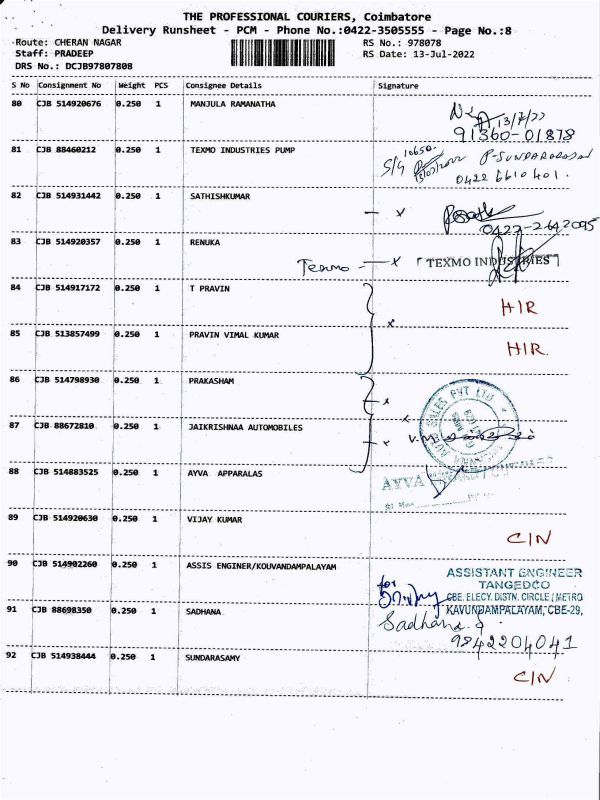 THE PROFESSIONAL COURIERS, Coimbatore
Delivery Runsheet - PCM - Phone No.:0422-3505555 - Page No.:8
Route: CHERAN NAGAR RS No.: 978078
Staff: PRADEEP RS Date: 13-Jul-2022
DRS No.: DCJB97807808
S No Consignment No Weight PCS Consignee Details Signature
80 CJB 514920676 0.250 1 MANJULA RAMANATHA
13/7/22
91360-01878
81 CJB 88460212 0.250 1 TEXMO INDUSTRIES PUMP
10650
S/G P-SUNDARARAJAN
0422 6610401.
82 CJB 514931442 0.250 1 SATHISHKUMAR
— x
0422-2642095
83 CJB 514920357 0.250 1 RENUKA
Texmo — x TEXMO INDUSTRIES
84 CJB 514917172 0.250 1 T PRAVIN
HIR
x
85 CJB 513857499 0.250 1 PRAVIN VIMAL KUMAR
HIR
86 CJB 514798930 0.250 1 PRAKASHAM
x
SALES PVT LTD
87 CJB 88672810 0.250 1 JAIKRISHNAA AUTOMOBILES
x
88 CJB 514883525 0.250 1 AYVA APPARALAS
AYVA
89 CJB 514920630 0.250 1 VIJAY KUMAR
CIN
90 CJB 514902260 0.250 1 ASSIS ENGINER/KOUVANDAMPALAYAM
for ASSISTANT ENGINEER
TANGEDCO
CBE. ELECY. DISTN. CIRCLE / METRO
KAVUNDAMPALAYAM, CBE-29,
91 CJB 88698350 0.250 1 SADHANA
Sadhana. S
9842204041
92 CJB 514938444 0.250 1 SUNDARASAMY
CIN